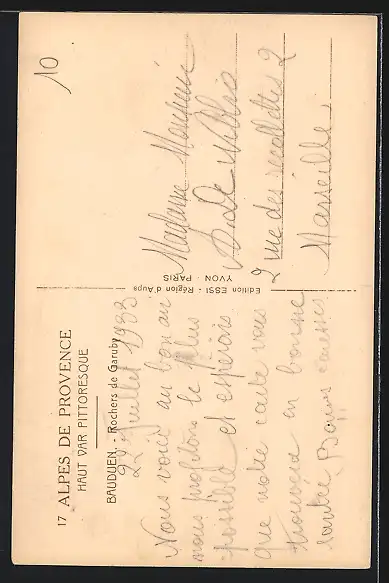 10
17 ALPES DE PROVENCE
HAUT VAR PITTORESQUE
BAUDUEN. - Rochers de Garuby
22 juillet 1933
Nous voici au bon air
nous profitons le plus
possible et espérons
que notre carte vous
trouvera en bonne
santé. Bons baisers
Edition ESSI - Région d'Aups
YVON - PARIS
Madame Monsieur
2 rue des recollettes 2
Marseille